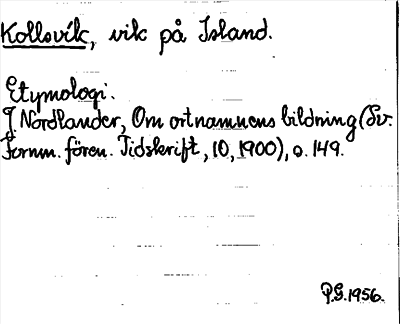 Kollsvík, vik på Island.
Etymologi.
J. Nordlander, Om ortnamnens bildning (Sv.
Fornm. fören. Tidskrift, 10, 1900), s. 149.
P.G. 1956.